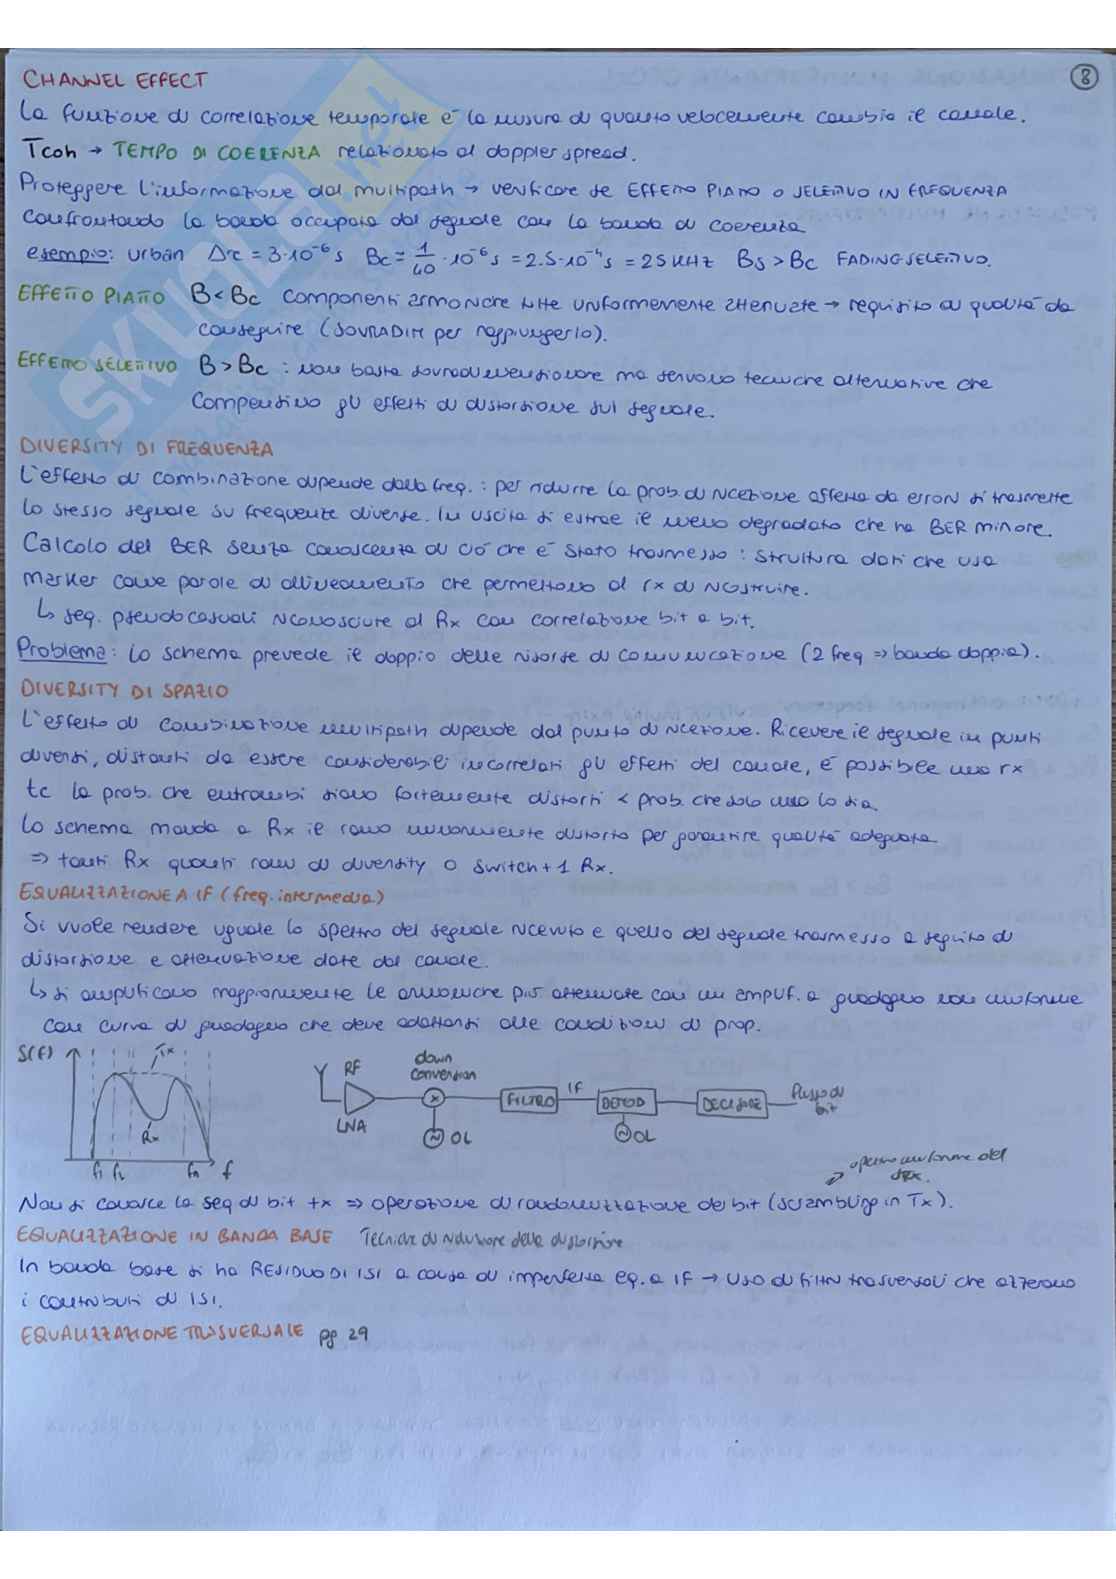 CHANNEL EFFECT
8
La funzione di correlazione temporale è la misura di quanto velocemente cambia il canale.
Tcoh → TEMPO DI COERENZA relazionato al doppler spread.
Proteggere l'informazione dal multipath → verificare se EFFETTO PIATTO O SELETTIVO IN FREQUENZA
confrontando la banda occupata dal segnale con la banda di coerenza
esempio: urban Δτ = 3·10⁻⁶ s Bc = 1/40 · 10⁻⁶ s = 2.5·10⁻⁴ s = 25 kHz Bs > Bc FADING SELETTIVO.
EFFETTO PIATTO B < Bc componenti armoniche tutte uniformemente attenuate → requisito di qualità da
conseguire (SOVRADIM per raggiungerlo).
EFFETTO SELETTIVO B > Bc : non basta sovradimensionare ma servono tecniche alternative che
compensino gli effetti di distorsione sul segnale.
DIVERSITY DI FREQUENZA
L'effetto di combinazione dipende dalla freq. : per ridurre la prob. di ricezione affetta da errori si trasmette
lo stesso segnale su frequenze diverse. In uscita si estrae il meno degradato che ha BER minore.
Calcolo del BER senza conoscenza di ciò che è stato trasmesso : struttura dati che usa
marker come parole di allineamento che permettono al rx di ricostruire.
↳ seq. pseudocasuali riconosciute al Rx con correlazione bit a bit.
Problema: lo schema prevede il doppio delle risorse di comunicazione (2 freq ⇒ banda doppia).
DIVERSITY DI SPAZIO
L'effetto di combinazione multipath dipende dal punto di ricezione. Ricevere il segnale in punti
diversi, distanti da essere considerabili incorrelati gli effetti del canale, è possibile uno rx
tc la prob. che entrambi siano fortemente distorti < prob. che solo uno lo sia.
Lo schema manda a Rx il ramo minormente distorto per garantire qualità adeguata
⇒ tanti Rx quanti rami di diversity o switch + 1 Rx.
EQUALIZZAZIONE A IF (freq. intermedia)
Si vuole rendere uguale lo spettro del segnale ricevuto e quello del segnale trasmesso a seguito di
distorsione e attenuazione date dal canale.
↳ si amplificano maggiormente le armoniche più attenuate con un amplif. a guadagno non uniforme
con curva di guadagno che deve adattarsi alle condizioni di prop.
S(f) Tx Rx f1 f2 fn f
RF LNA down conversion OL FILTRO IF DEMOD OL DECISORE flusso di bit
Non si conosce la seq di bit tx ⇒ operazione di randomizzazione dei bit (scrambling in Tx).
EQUALIZZAZIONE IN BANDA BASE Tecnica di riduzione della distorsione
In banda base si ha RESIDUO DI ISI a causa di imperfetta eq. a IF → uso di filtri trasversali che azzerano
i contributi di ISI.
EQUALIZZAZIONE TRASVERSALE pg 29